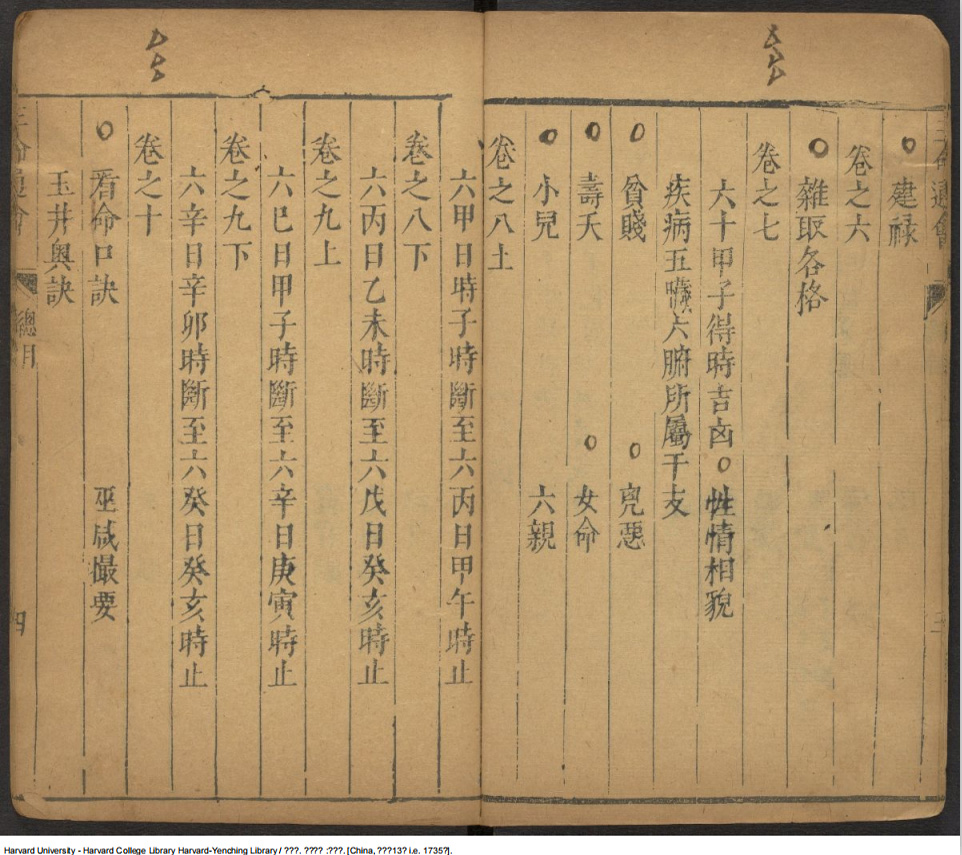 通會
○建禄
卷之六
○雜取各格
卷之七
六十甲子得時吉凶○性情相貌
疾病五臟六腑所屬干支
○貧賤　○兇惡
○壽夭　○女命
○小兒　六親
卷之八上
六甲日時子時斷至六丙日甲午時止
卷之八下
六丙日乙未時斷至六戊日癸亥時止
卷之九上
六巳日甲子時斷至六辛日庚寅時止
卷之九下
六辛日辛卯時斷至六癸日癸亥時止
卷之十
○看命口訣　巫咸撮要
玉井奧訣
三命通會　總目　四
Harvard University - Harvard College Library Harvard-Yenching Library / ???. ???? :???. [China, ???13? i.e. 1735?].